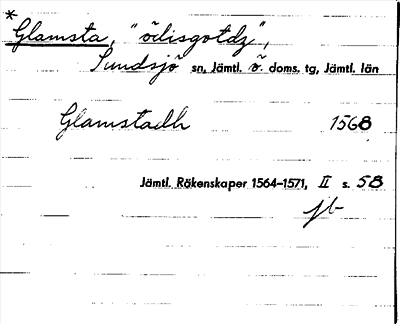 *
Glamsta, "ödisgotdz",
Sundsjö sn, Jämtl. ö. doms. tg, Jämtl. län
Glamstadh 1568
Jämtl. Räkenskaper 1564–1571, II s. 58
jb